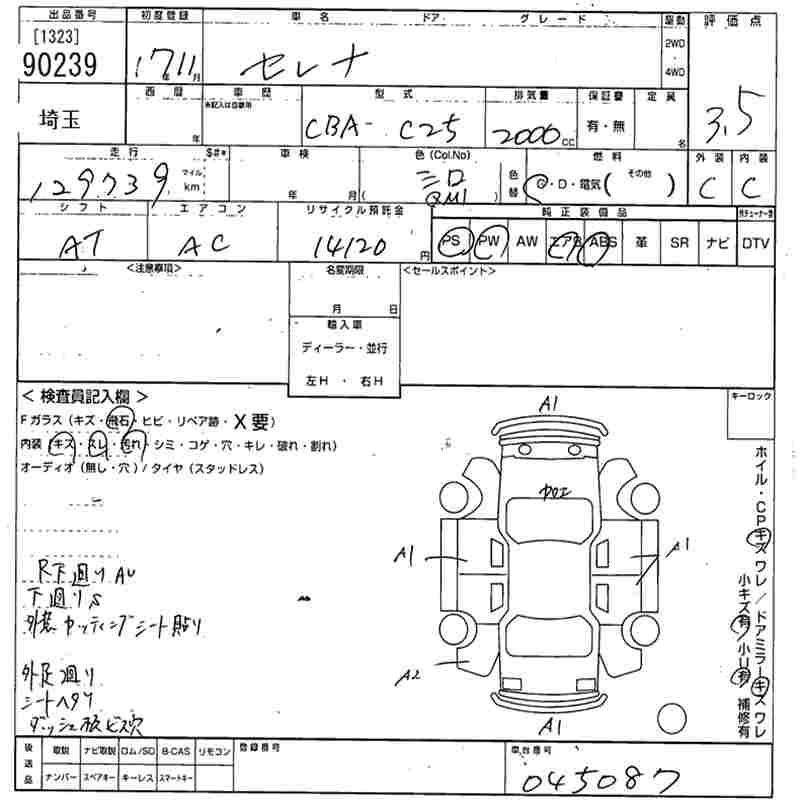 出品番号 初度登録 車名 ドア グレード 駆動 評価点
[1323]
90239 17年11月 セレナ 2WD 4WD 3.5
埼玉 西暦 年 車歴 ※記入は自家用 型式 CBA- C25 排気量 2000cc 保証書 有・無 定員 名
走行 129739 マイル km $#* 車検 年 月 色(Col.No) 色替 燃料 G・D・電気( その他 ) 外装 C 内装 C
シフト AT エアコン AC リサイクル預託金 14120円 純正装備品
PS PW AW エアB ABS 革 SR ナビ DTV
<注意事項> 名変期限 月 日 <セールスポイント>
輸入車
ディーラー・並行
左H ・ 右H
<検査員記入欄> キーロック
Fガラス(キズ・飛石・ヒビ・リペア跡・X要)
内装(キズ・スレ・汚れ・シミ・コゲ・穴・キレ・破れ・割れ)
オーディオ(無し・穴)/タイヤ(スタッドレス)
A1
カロエ
A1 A1
A2
A1
ホイル・CPキズ ワレ/ドアミラーキズ ワレ
小キズ有/小U有/補修有
R下廻りAU
下廻りS
カッティングシート貼り
外足廻り
シートヘタリ
ダッシュ板ビス穴
後送品 取説 ナビ取説 ロム/SD B-CAS リモコン 登録番号 車台番号
ナンバー スペアキー キーレス スマートキー 045087